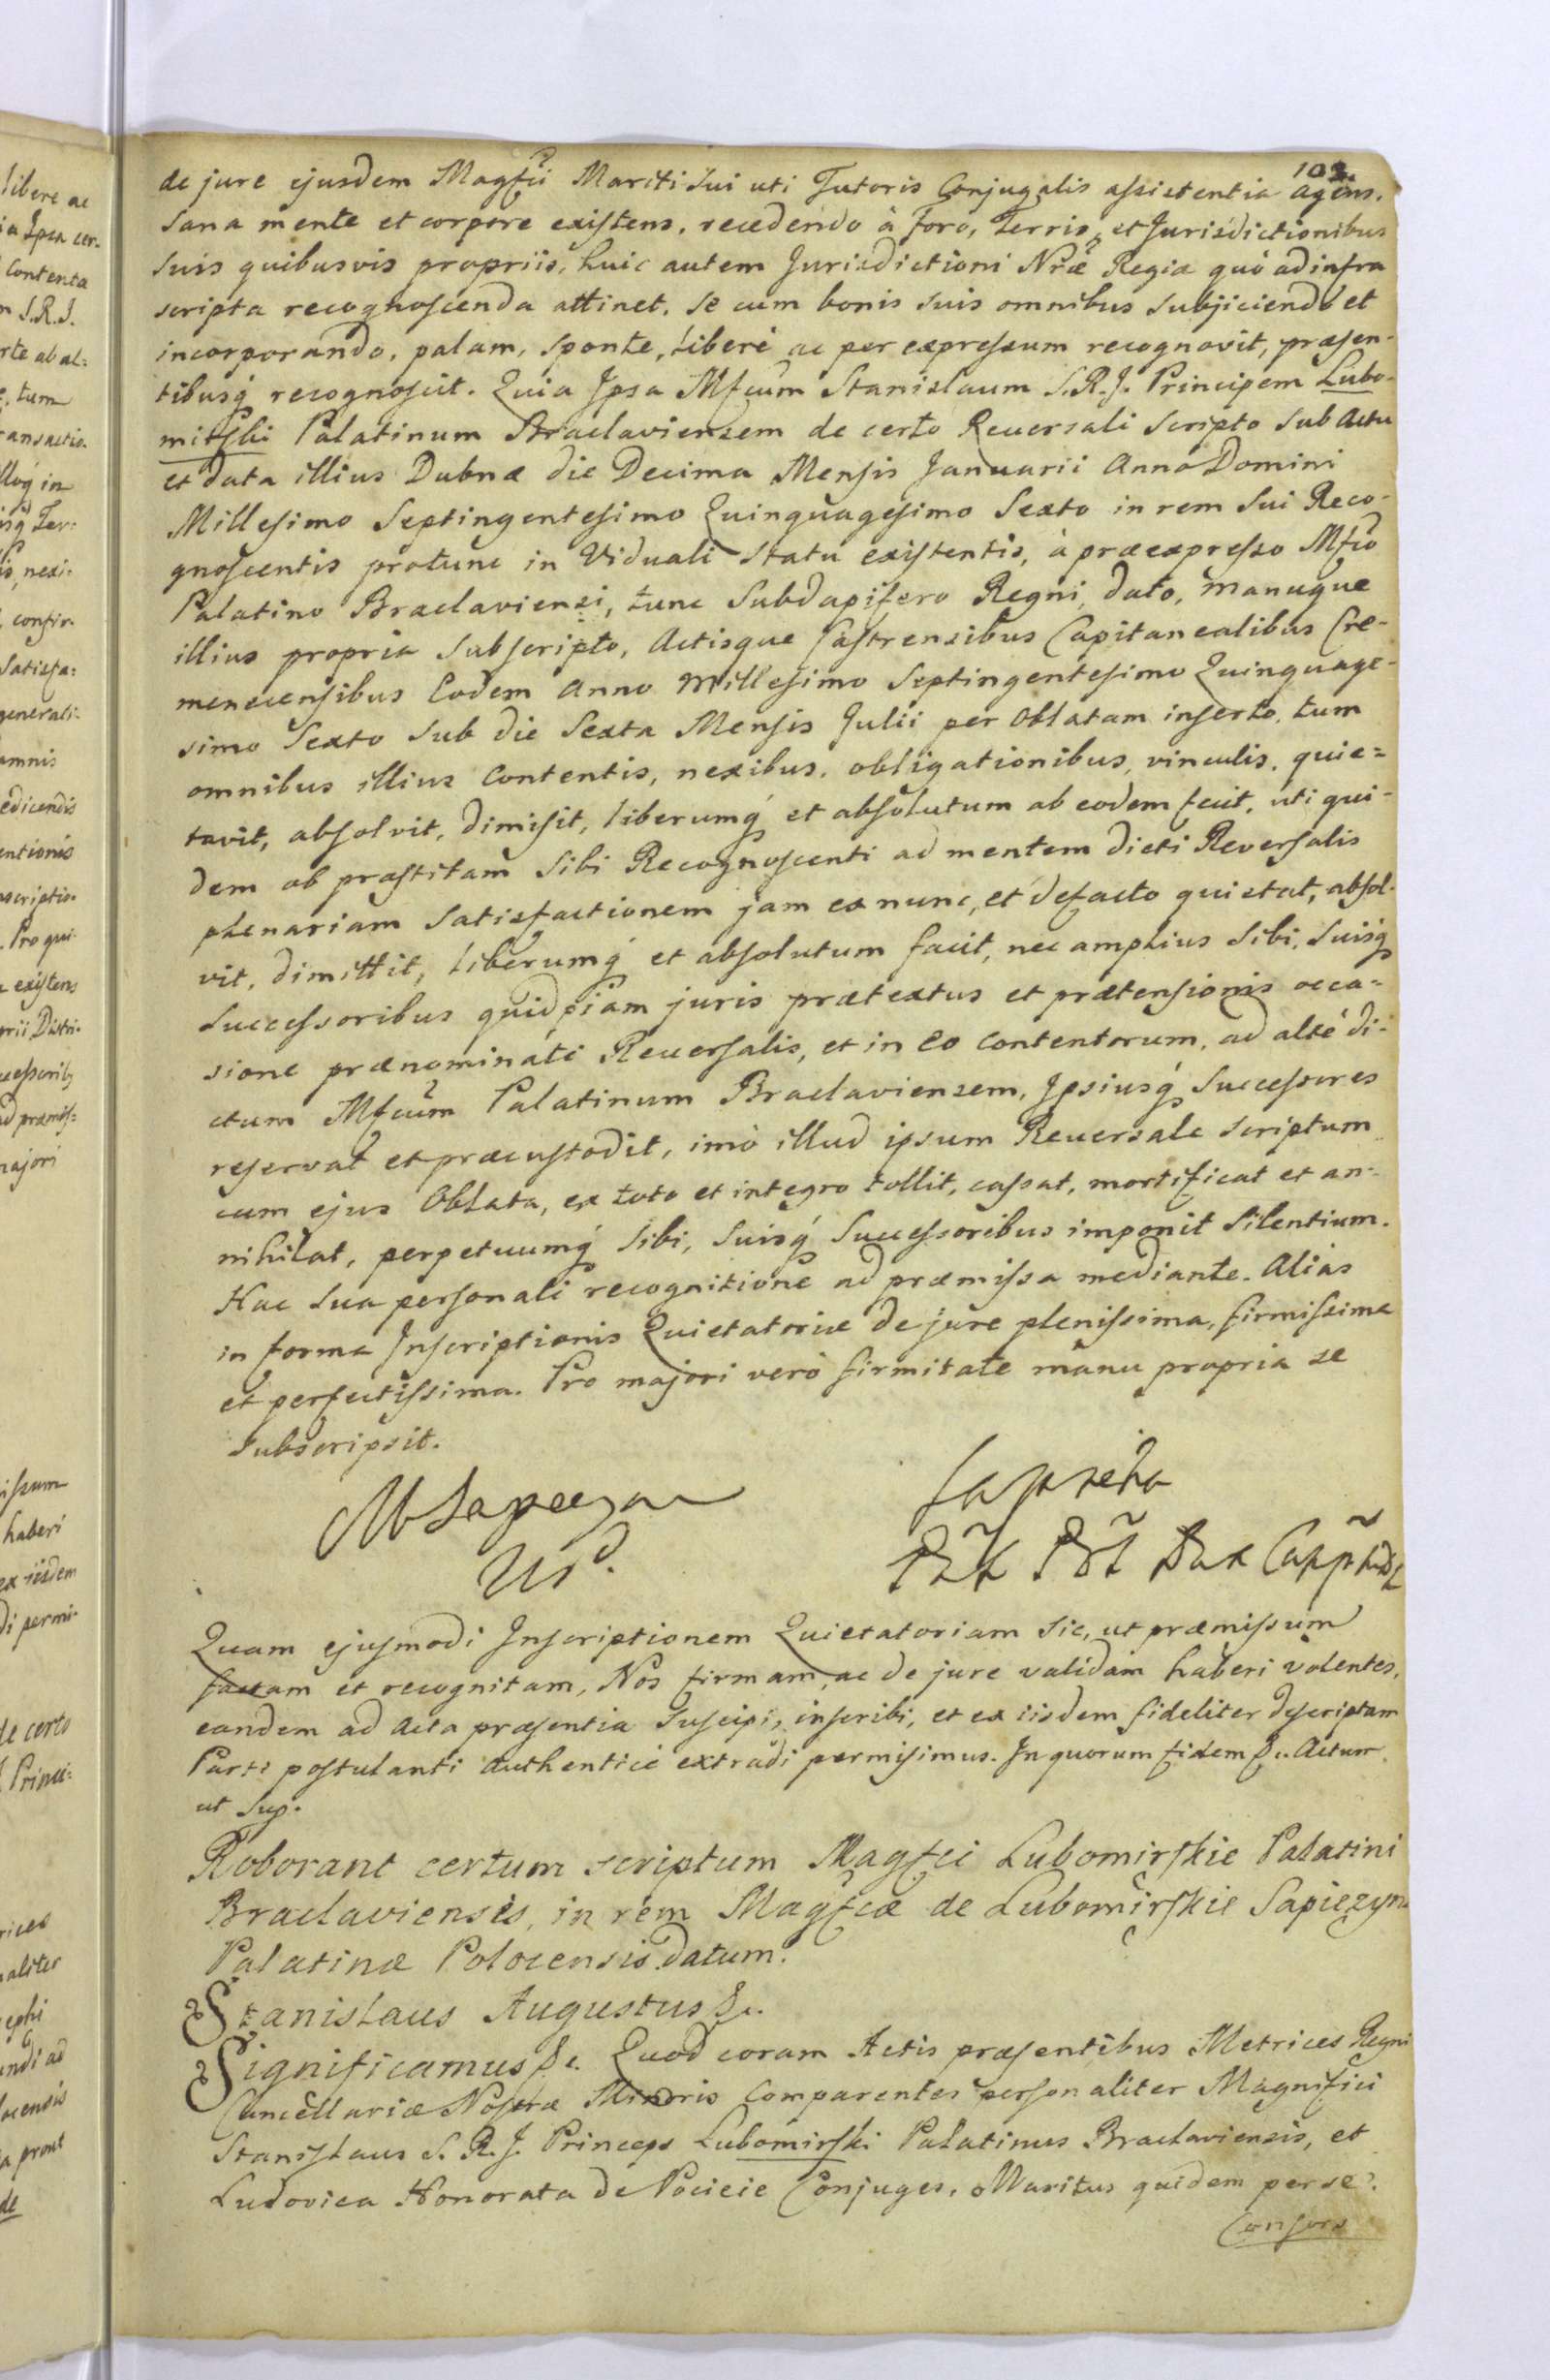 103.
de jure ejusdem Magfci Mariti sui uti Tutoris Conjugalis assistentia agens.
Sana mente et corpore existens, recedendo à foro, Terris, et Jurisdictionibus
suis quibusvis propriis, huic autem Jurisdictioni Nræ Regiæ quò ad infra
scripta recognoscenda attinet, se cum bonis suis omnibus subjiciendo et
incorporando, palam, sponte, liberè ac per expressum recognovit, præsen-
tibusq́ recognoscit. Quia Ipsa Mfcum Stanislaum S.R.J. Principem Lubo-
mirski Palatinum Braclaviensem de certo Reversali Scripto sub actu
et data illius Dubnæ die Decima Mensis Januarii Anno Domini
Millesimo Septingentesimo Quinquagesimo Sexto in rem sui Reco-
gnoscentis protunc in Viduali statu existentis, à præexpresso Mfco
Palatino Braclaviensi, tunc Subdapifero Regni, dato, manuque
illius propria subscripto, Actisque Castrensibus Capitanealibus Cre-
menecensibus Eodem Anno Millesimo Septingentesimo Quinquage-
simo Sexto sub die Sexta Mensis Julii per Oblatam inserto, tum
omnibus illius Contentis, nexibus, obligationibus, vinculis, quie=
tavit, absolvit, dimisit, liberumq́ et absolutum ab eodem fecit, uti qui-
dem ob præstitam sibi Recognoscenti ad mentem dicti Reversalis
plenariam satisfactionem jam ex nunc, et defacto quietat, absol-
vit, dimittit, liberumq́ et absolutum facit, nec amplius sibi, suisq́
Successoribus quidpiam juris prætextus et prætensionis occa=
sione prænominati Reversalis, et in Eo Contentorum, ad altè di-
ctum Mfcum Palatinum Braclaviensem, Ipsiusq́ Successores
reservat et præcustodit, imò illud ipsum Reversale scriptum
cum ejus Oblata, ex toto et integro tollit, cassat, mortificat et an-
nihilat, perpetuumq́ sibi, suisq́ Successoribus imponit silentium.
Hac sua personali recognitione ad præmissa mediante. Aliàs
in forma Inscriptionis Quietatoriæ de jure plenissima, firmissima
et perfectissima. Pro majori verò firmitate manu propria se
subscripsit.
Sapieha
Quam ejusmodi Inscriptionem Quietatoriam sic, ut præmissum
factam et recognitam, Nos firmam, ac de jure validam haberi volentes,
eandem ad Acta præsentia suscipi, inscribi, et ex iisdem fideliter descriptam
Parti postulanti authenticè extradi permisimus. In quorum fidem &c. Actum
ut Sup.
Roborant certum scriptum Magfci Lubomirskie Palatini
Braclaviensis, in rem Magfcæ de Lubomirskie Sapiezyna
Palatinæ Polocensis datum.
Stanislaus Augustus &c.
Significamus &c. Quod coram Actis præsentibus Metrices Regni
Cancellariæ Nostræ Minoris Comparentes personaliter Magnifici
Stanislaus S. R. J. Princeps Lubomirski Palatinus Braclaviensis, et
Ludovica Honorata de Pocieie Conjuges, Maritus quidem per se,
Consors